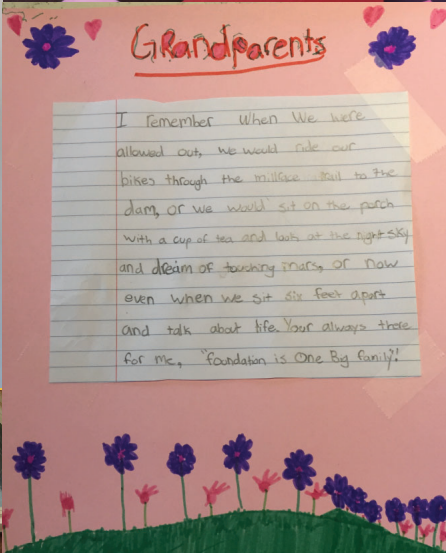 Grandparents
I remember when we were
allowed out, we would ride our
bikes through the millrace trail to the
dam, or we would sit on the porch
with a cup of tea and look at the night sky
and dream of touching mars, or now
even when we sit six feet apart
and talk about life. Your always there
for me, "foundation is One Big family"!